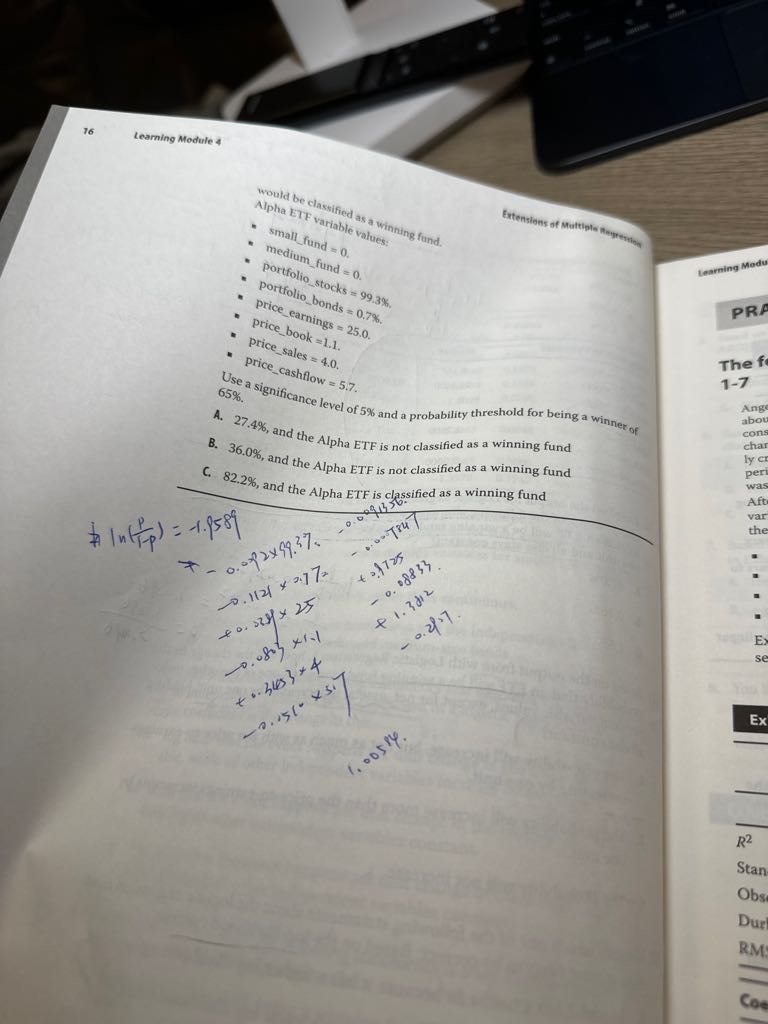 16 Learning Module 4
Extensions of Multiple Regression
would be classified as a winning fund.
Alpha ETF variable values:
▪ small_fund = 0.
▪ medium_fund = 0.
▪ portfolio_stocks = 99.3%.
▪ portfolio_bonds = 0.7%.
▪ price_earnings = 25.0.
▪ price_book =1.1.
▪ price_sales = 4.0.
▪ price_cashflow = 5.7.
Use a significance level of 5% and a probability threshold for being a winner of
65%.
A. 27.4%, and the Alpha ETF is not classified as a winning fund
B. 36.0%, and the Alpha ETF is not classified as a winning fund
C. 82.2%, and the Alpha ETF is classified as a winning fund
ln(P/1-P) = -1.9589
-0.092×99.3%
-0.1121 × 0.7%
× 25 + 0.9725
-0.0803 ×1.1 -0.08833
+0.3453 × 4 + 1.3812
× 5.7
Learning Modu
PRA
The fo
1-7
Ange
abou
cons
char
ly cr
peri
was
Afte
var
the
Ex
se
Ex
R²
Stan
Obse
Durl
RMS
Coe